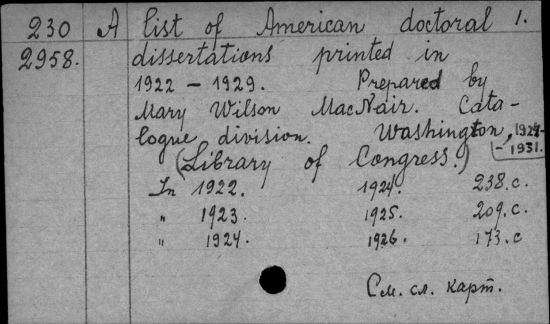 230 A list of American doctoral 1.
2958. dissertations printed in
1922 – 1929. Prepared by
Mary Wilson MacNair. Cata-
logue division. Washington, 1924-
(Library of Congress.) - 1931.
In 1922. 1924. 238.c.
" 1923. 1925. 209.c.
" 1924. 1926. 173.c
См. сл. карт.